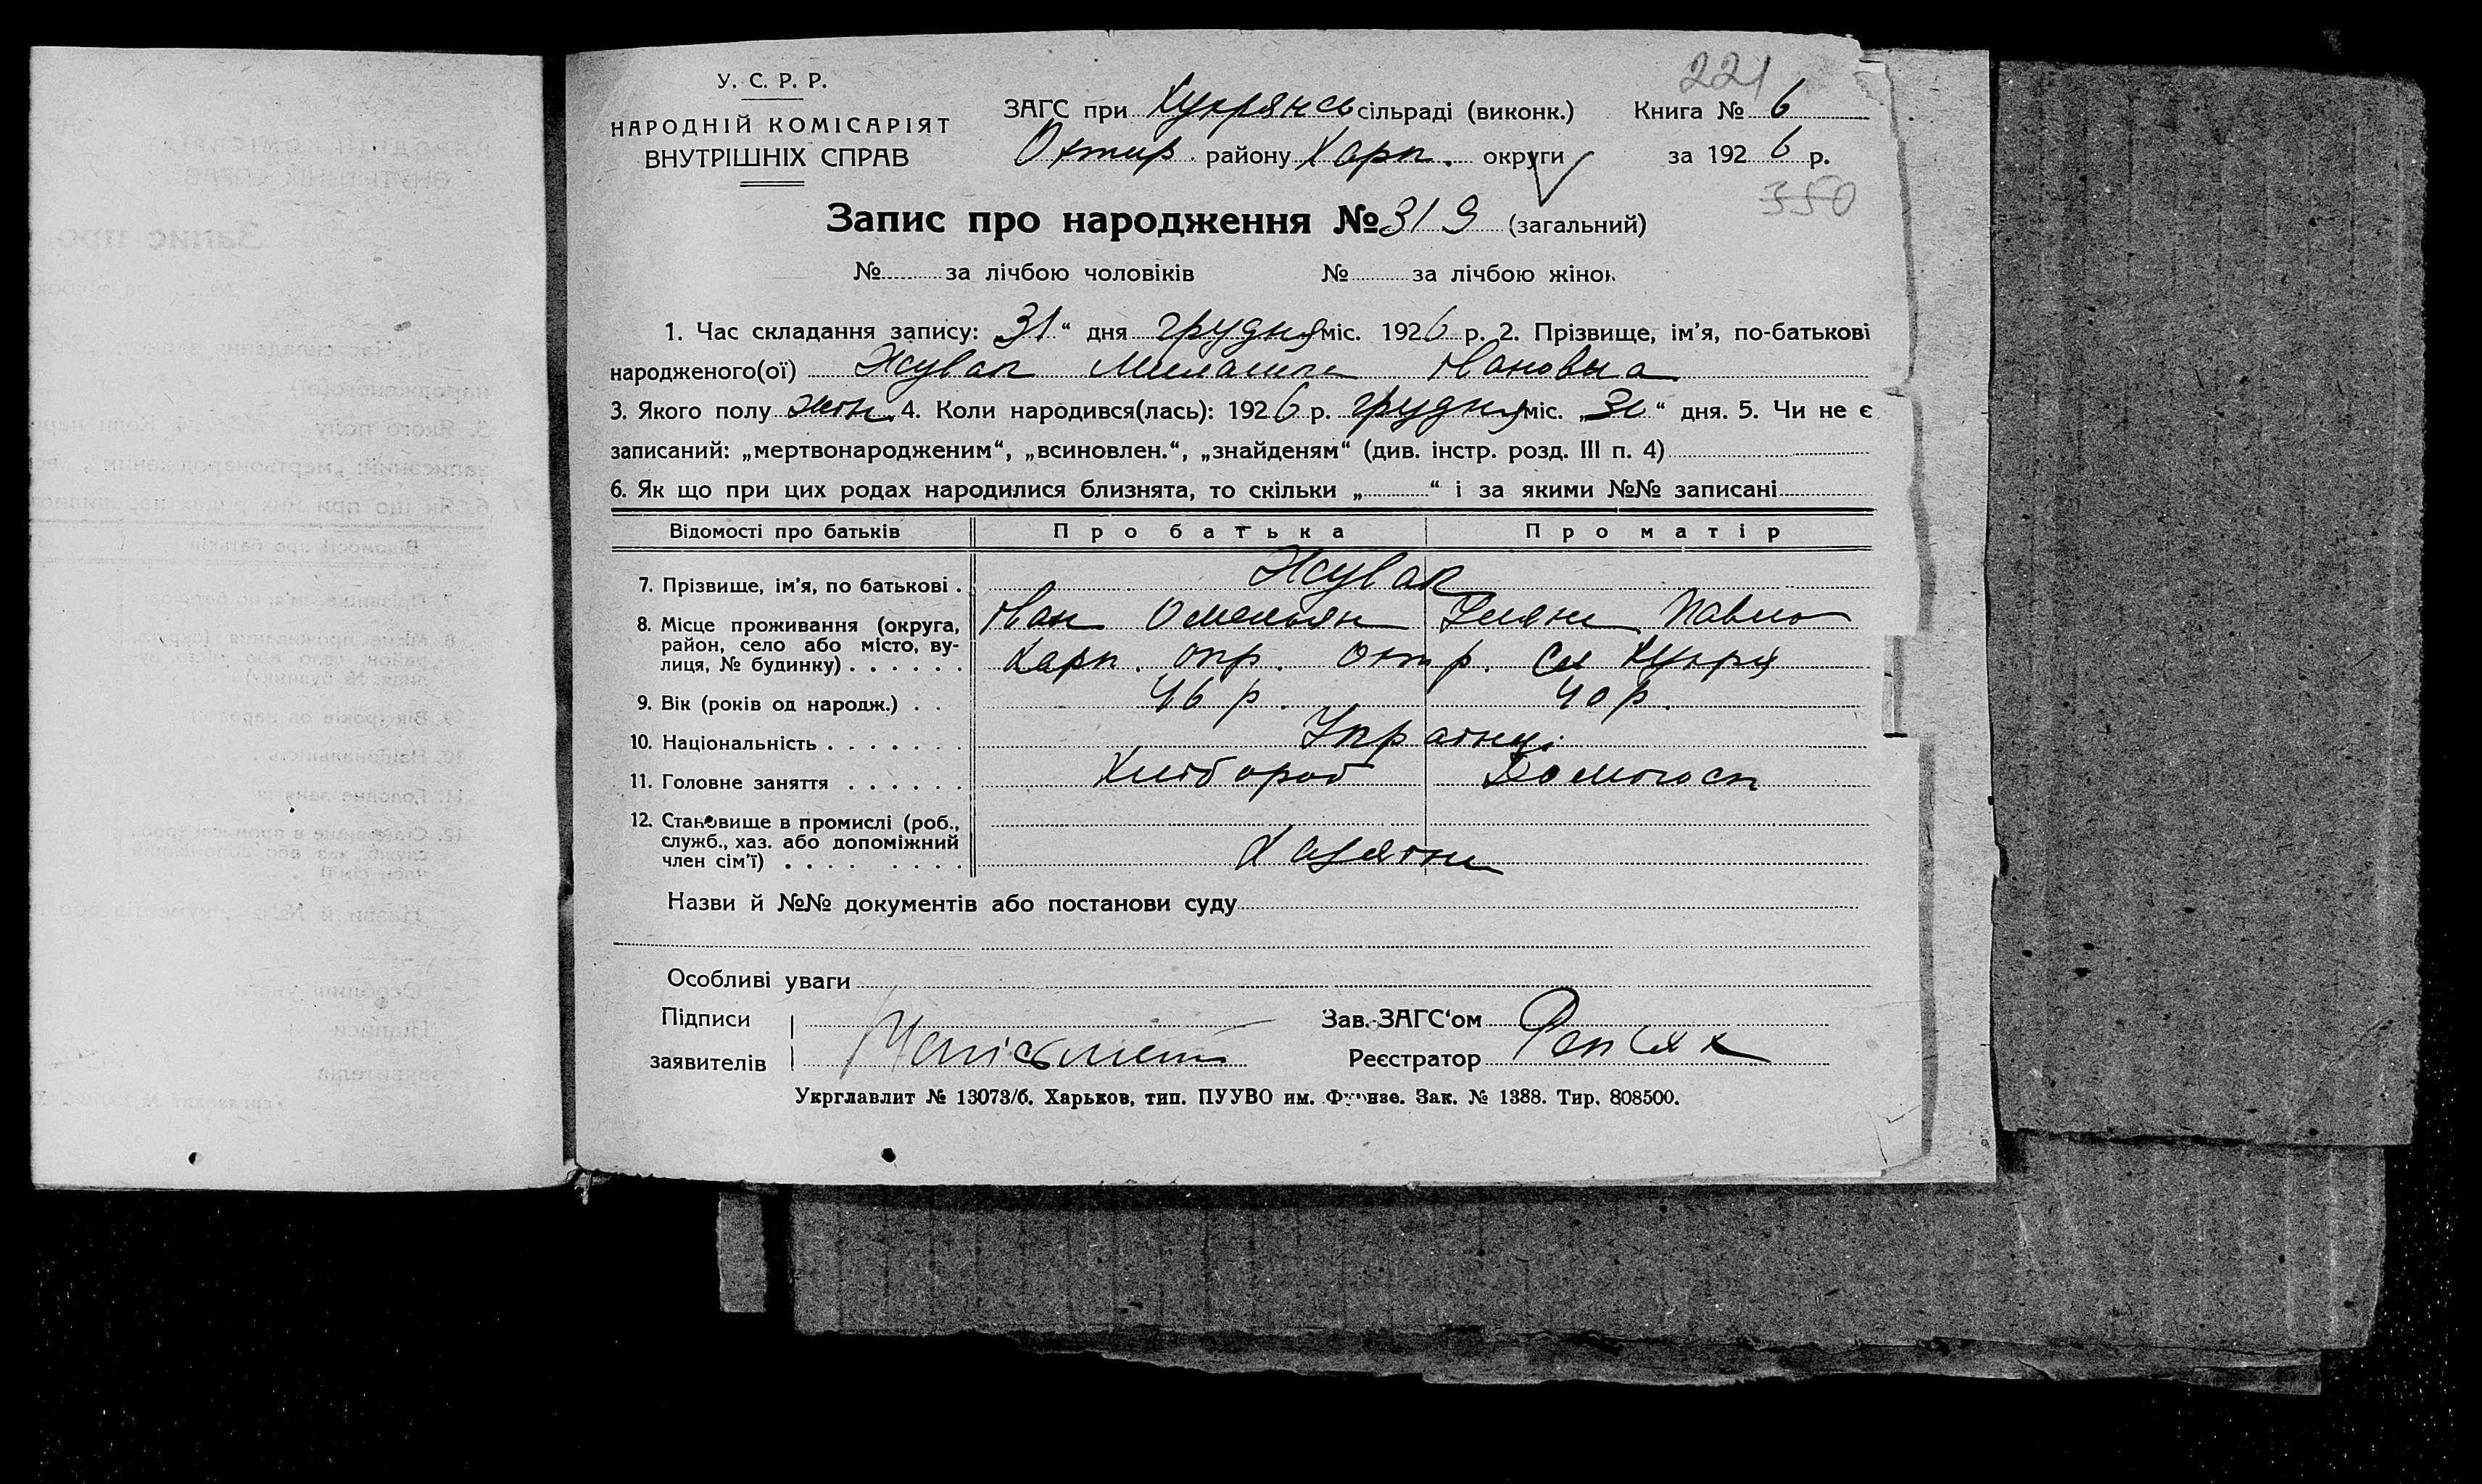 221
У. С. Р. Р.
НАРОДНІЙ КОМІСАРІЯТ
ВНУТРІШНІХ СПРАВ
ЗАГС при Хухрянсь сільраді (виконк.) Книга № 6
Охтир. району Харк. округи за 1926 р.
350
Запис про народження № 319 (загальний)
№ за лічбою чоловіків № за лічбою жінок
1. Час складання запису: 31“ дня грудня міс. 1926 р. 2. Прізвище, ім’я, по-батькові
народженого(ої) Жувак Мелашка Івановна
3. Якого полу жін. 4. Коли народився(лась): 1926 р. грудня міс. „ “ дня. 5. Чи не є
записаний: „мертвонародженим“, „всиновлен.“, „знайденям“ (див. інстр. розд. III п. 4)
6. Як що при цих родах народилися близнята, то скільки „ “ і за якими №№ записані
Відомості про батьків Про батька Про матір
7. Прізвище, ім’я, по батькові . Жувак
Іван Омельян Уляна Павло
8. Місце проживання (округа,
район, село або місто, ву-
лиця, № будинку) . . . . . . Харк. окр. Охт р. Хухря
9. Вік (років од народж.) . . 46 р. 40 р.
10. Національність . . . . . . . Українці
11. Головне заняття . . . . . . Хлібороб Домогосп
12. Становище в промислі (роб.,
служб., хаз. або допоміжний
член сім’ї) . . . . . . . . . Хазяїни
Назви й №№ документів або постанови суду
Особливі уваги
Підписи Зав. ЗАГС‘ом
заявителів Неписьмен Реєстратор
Укрглавлит № 13073/б. Харьков, тип. ПУУВО им. Фрунзе. Зак. № 1388. Тир. 808500.